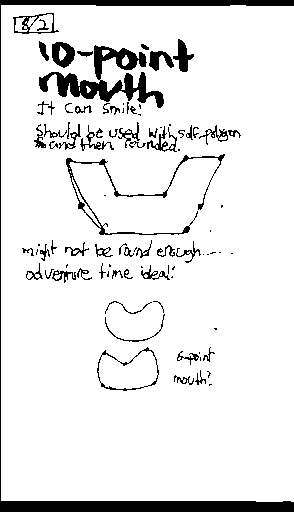 8/2
10-point
mouth
It can smile!
Should be used with sdf-polygon
and then rounded.
might not be round enough.....
adventure time ideal!
6-point
mouth?